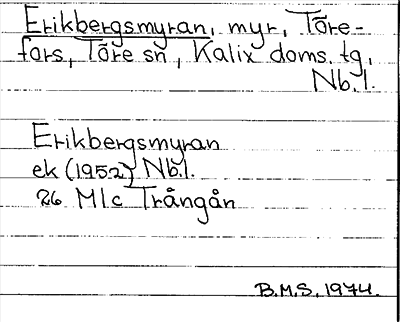 Erikbergsmyran, myr, Töre-
fors, Töre sn, Kalix doms. tg,
Nb. l.
Erikbergsmyran
ek (1952) Nb. l.
26 M1c Trångån
B.M.S, 1974.